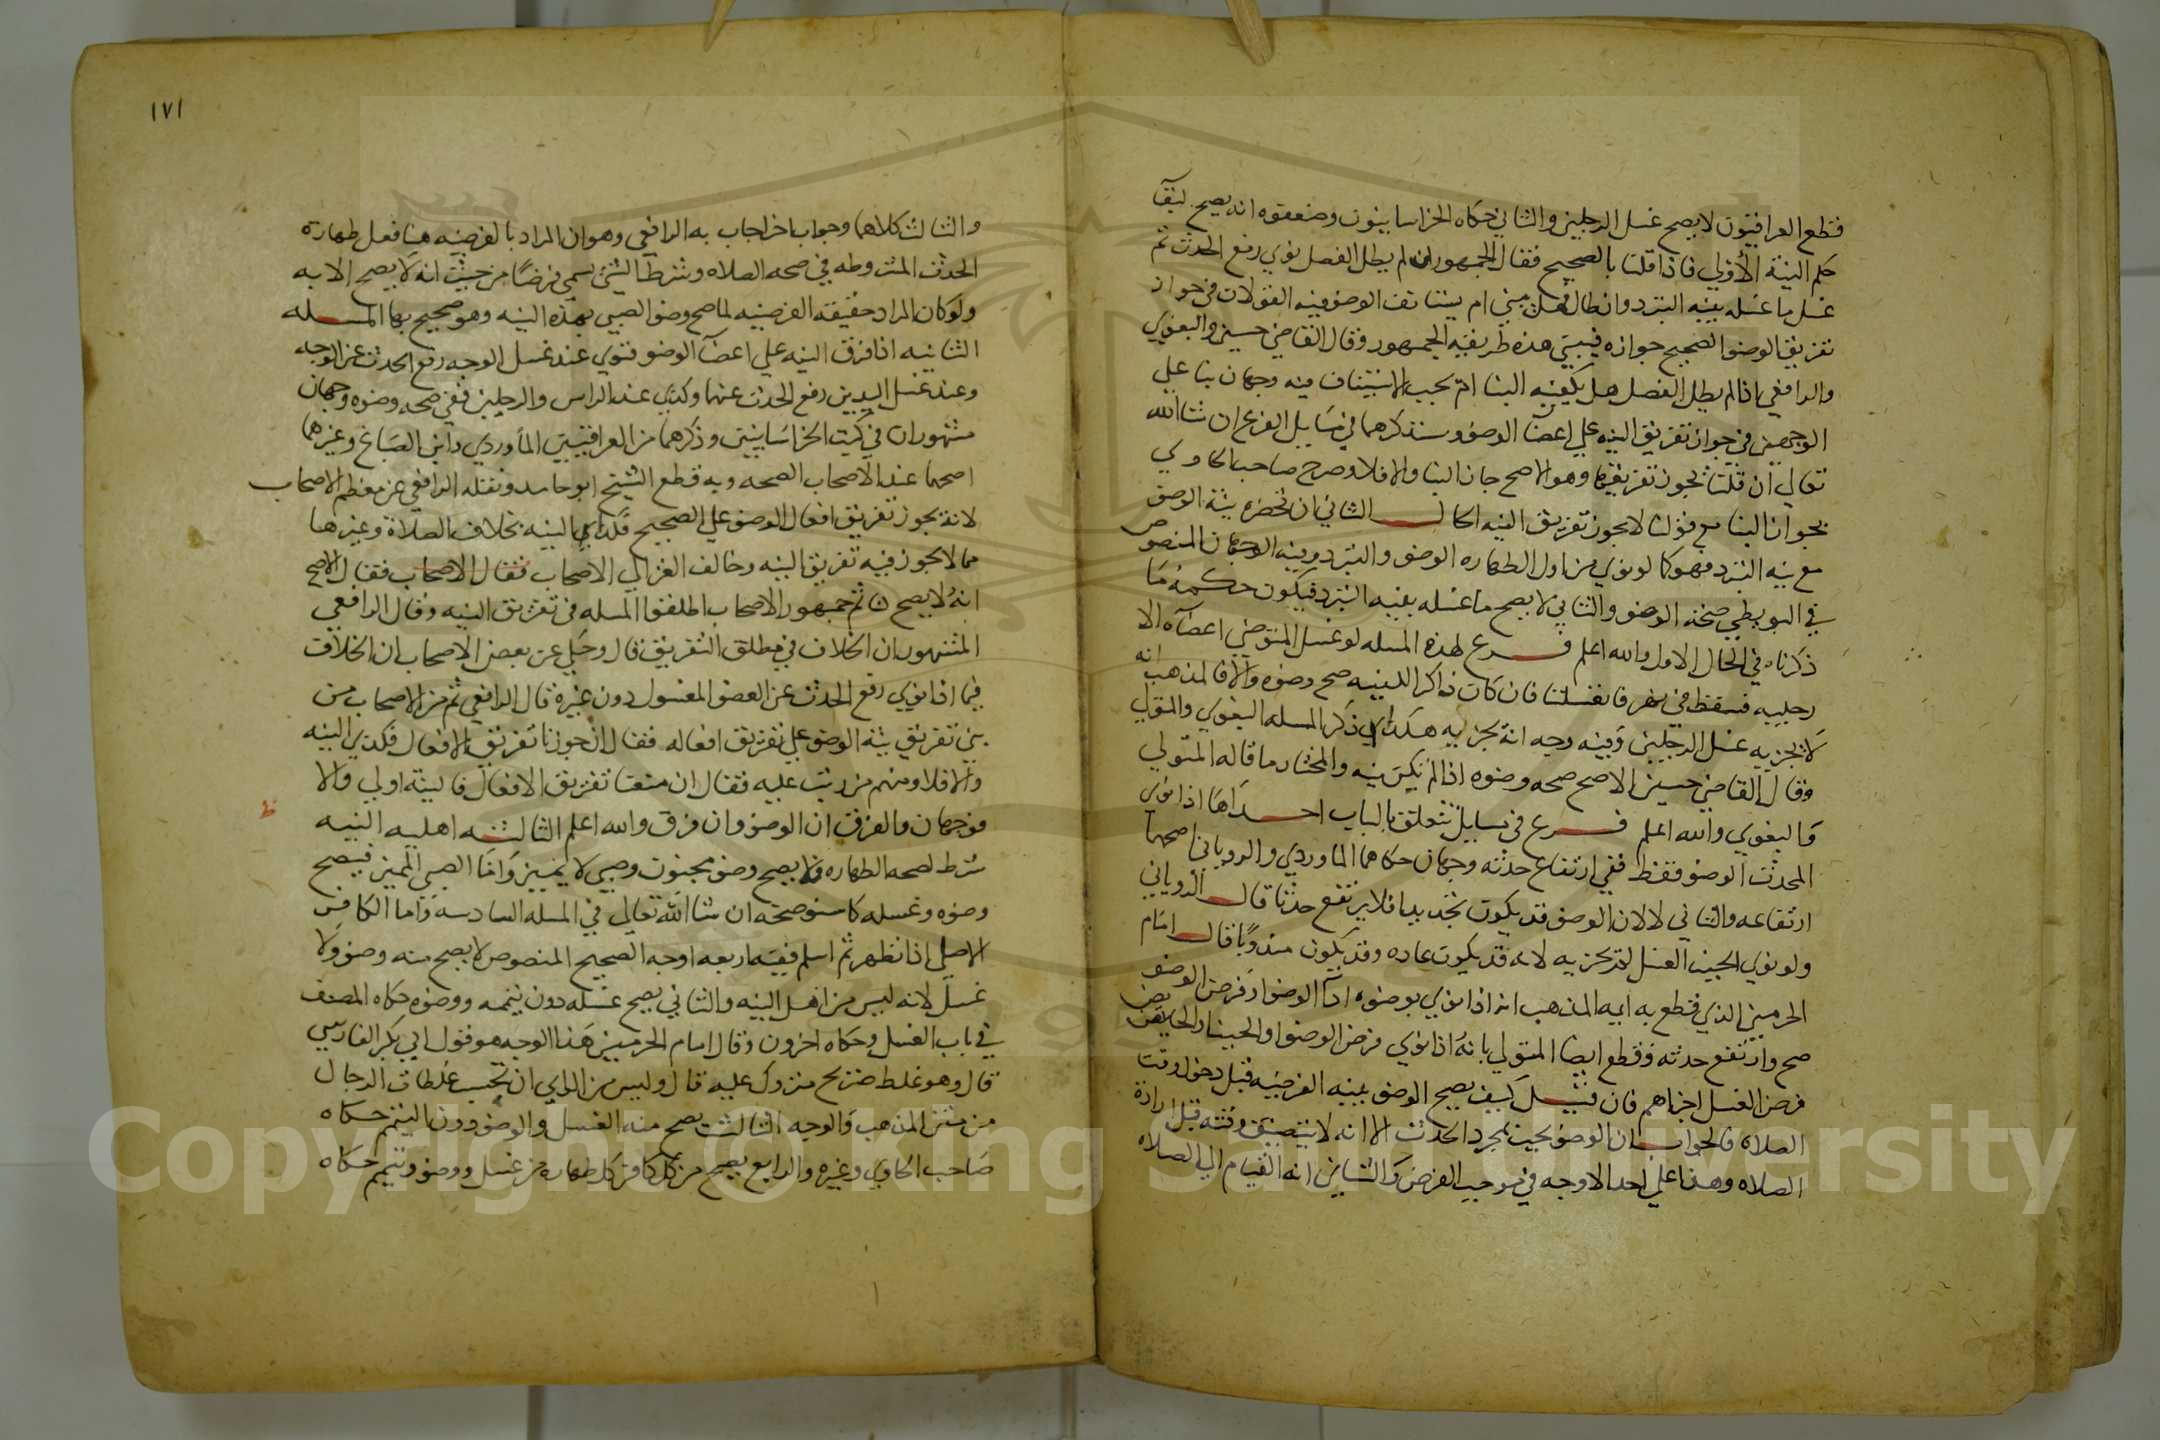 قطع العراقيون لا يصح غسل الرجلين والثاني حكاه الخراسانيون وضعفوه انه يصح لبقآ
حكم النية الأولي فاذا قلنا بالصحيح فقال الجمهور ان لم يطل الفصل نوي رفع الحدث ثم
غسل ما غسله بنيه التبرد وان طال فهل يبني ام يستانف الوضو فيه القولان في جواز
تفريق الوضو الصحيح جوازه فيبني هذه طريقه الجمهور وقال القاضي حسين والبغوي
والرافعي اذا لم يطل الفصل هل يكفيه البنا ام يجب الاستيناف فيه وجهان بنا علي
الوجهين في جواز تفريق النيه علي اعضآ الوضو وسنذكرهما في مسايل الفرع ان شا الله
تعالي ان قلنا يجوز تفريقها وهو الاصح جاز البنا والا فلا وصرح صاحب الحاوي
بجواز البنا مع قولنا لا يجوز تفريق النيه الحال الثاني ان تحضره نية الوضو
مع نيه التبرد فهو كما لو نوي من اول الطهاره الوضو والتبرد وفيه الوجهان المنصوص
في البويطي صحة الوضو والثاني لا يصح ما غسله بنيه التبرد فيكون حكمه ما
ذكرناه في الحال الاول والله اعلم فرع لهذه المسله لو غسل المتوضي اعضآه الا
رجليه فسقط في نهر فانغسلتا فان كان ذاكرا للنيه صح وضوه والا فالمذهب انه
لا يجزيه غسل الرجلين وفيه وجه انه يجزيه هكذا ذكر المسله البغوي والمتولي
وقال القاضي حسين الاصح صحه وضوه اذا لم يكن نيه والمختار ما قاله المتولي
والبغوي والله اعلم فرع في مسايل تتعلق بالباب احداها اذا نوي
المحدث الوضو فقط ففي ارتفاع حدثه وجهان حكاهما الماوردي والروياني اصحهما
ارتفاعه والثاني لا لان الوضو قد يكون تجديدا فلا يرتفع حدثا قال الروياني
ولو نوي الجنب الغسل لم يجزيه لانه قد يكون عاده وقد يكون مندوبا قال امام
الحرمين الذي قطع به ايمه المذهب انه اذا نوي بوضوه ادآ الوضو او فرض الوضو
صح وارتفع حدثه وقطع ايضا المتولي بانه اذا نوي فرض الوضو او الجنب او الحايض
فرض الغسل اجزاهم فان قيل كيف يصح الوضو بنيه الفرضيه قبل دخول وقت
الصلاه فالجواب ان الوضو يجب بمجرد الحدث الا انه لا يتضيق وقته قبل ارادة
الصلاه وهذا علي احد الاوجه في موجب الفرض والثاني انه القيام الي الصلاه
١٧١
والثالث كلاهما وجواب اخر اجاب به الرافعي وهو ان المراد بالفرضيه هنا فعل طهارة
الحدث المشروطه في صحه الصلاه وشرط الشي يسمي فرضا من حيث انه لا يصح الا به
ولو كان المراد حقيقه الفرضيه لما صح وضو الصبي بهذه النيه وهو صحيح بها المسله
الثانيه اذا فرق النيه علي اعضآ الوضو فنوي عند غسل الوجه رفع الحدث عن الوجه
وعند غسل اليدين رفع الحدث عنهما وكذي عند الراس والرجلين ففي صحه وضوه وجهان
مشهوران في كتب الخراسانيين وذكرهما من العراقيين الماوردي وابن الصباغ وغيرهما
اصحهما عند الاصحاب الصحه وبه قطع الشيخ ابو حامد ونقله الرافعي عن معظم الاصحاب
لانه يجوز تفريق افعال الوضو علي الصحيح فكذي النيه بخلاف الصلاة وغيرها
مما لا يجوز فيه تفريق النيه وخالف الغزالي الاصحاب فقال الاصحاب فقال الاصح
انه لا يصح ثم جمهور الاصحاب اطلقوا المسله في تفريق النيه وقال الرافعي
المشهور ان الخلاف في مطلق التفريق قال وحكي عن بعض الاصحاب ان الخلاف
فيما اذا نوي رفع الحدث عن العضو المغسول دون غيره قال الرافعي ثم من الاصحاب من
بني تفريق نية الوضو علي تفريق افعاله فقال ان جوزنا تفريق الافعال فكذي النيه
والا فلا ومنهم من رتب عليه فقال ان منعنا تفريق الافعال فالنية اولي والا
فوجهان والفرق ان الوضو وان فرق والله اعلم الثالثه اهليه النيه
شرط لصحه الطهاره فلا يصح وضو مجنون وصبي لا يميز واما الصبي المميز فيصح
وضوه وغسله كما سنوضحه ان شا الله تعالي في المسله السادسه واما الكافر
الاصلي اذا تطهر ثم اسلم ففيه اربعه اوجه الصحيح المنصوص لا يصح منه وضو ولا
غسل لانه ليس من اهل النيه والثاني يصح غسله دون تيممه ووضوه حكاه المصنف
في باب الغسل وحكاه اخرون وقال امام الحرمين هذا الوجه هو قول ابي بكر الفارسي
قال وهو غلط صريح متروك عليه قال وليس من الراي ان تحسب غلطات الرجال
من متن المذهب والوجه الثالث يصح منه الغسل والوضو دون التيمم حكاه
صاحب الحاوي وغيره والرابع يصح من كل كافر كل طهاره من غسل ووضو وتيمم حكاه
Copyright © King Saud University